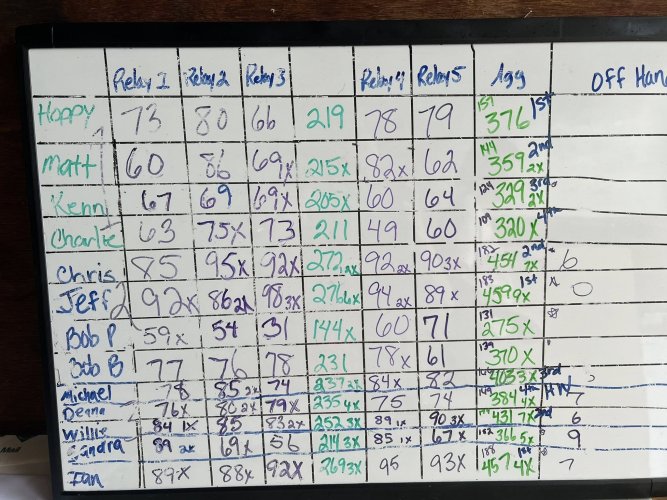 Relay 1 Relay 2 Relay 3 Relay 4 Relay 5 Agg Off Han
Happy 73 80 66 219 78 79 157 376 1st
Matt 60 86 69x 215x 82x 62 144 359 2x 2nd
Kenn 67 69 69x 205x 60 64 124 329 2x 3rd
Charlie 63 75x 73 211 49 60 109 320x 4th
Chris 85 95x 92x 272 92 2x 90 3x 182 454 7x 2nd 6
Jeff 92x 86 2x 98 3x 276 6x 94 2x 89x 183 459 9x 1st 0
Bob P 59x 54 31 144x 60 71 131 275x
Bob B 77 76 78 231 78x 61 139 370x
Michael 78 85 74 237 84x 82 403 3x 3rd
Deana 76x 80 2x 79x 235 4x 75 74 384 4x 4th HW 7
Willie 84 1x 85 83 2x 252 3x 89 1x 90 3x 431 7x 2nd 6
Sandra 89 2x 69x 56 214 3x 85 1x 67x 152 366 5x 9
Ian 89x 88x 92x 269 3x 95 93x 188 457 4x 1st 7